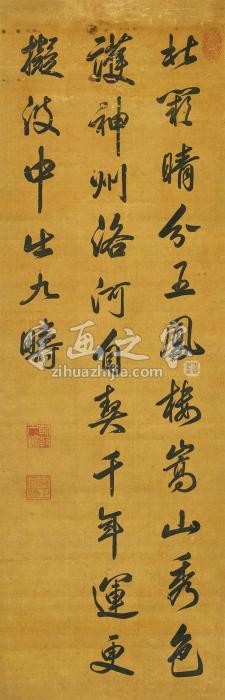 北闕晴分五鳳樓嵩山秀色
護神州洛河自契千年運更
擬波中出九疇
字画之家
zihuazhijia.com